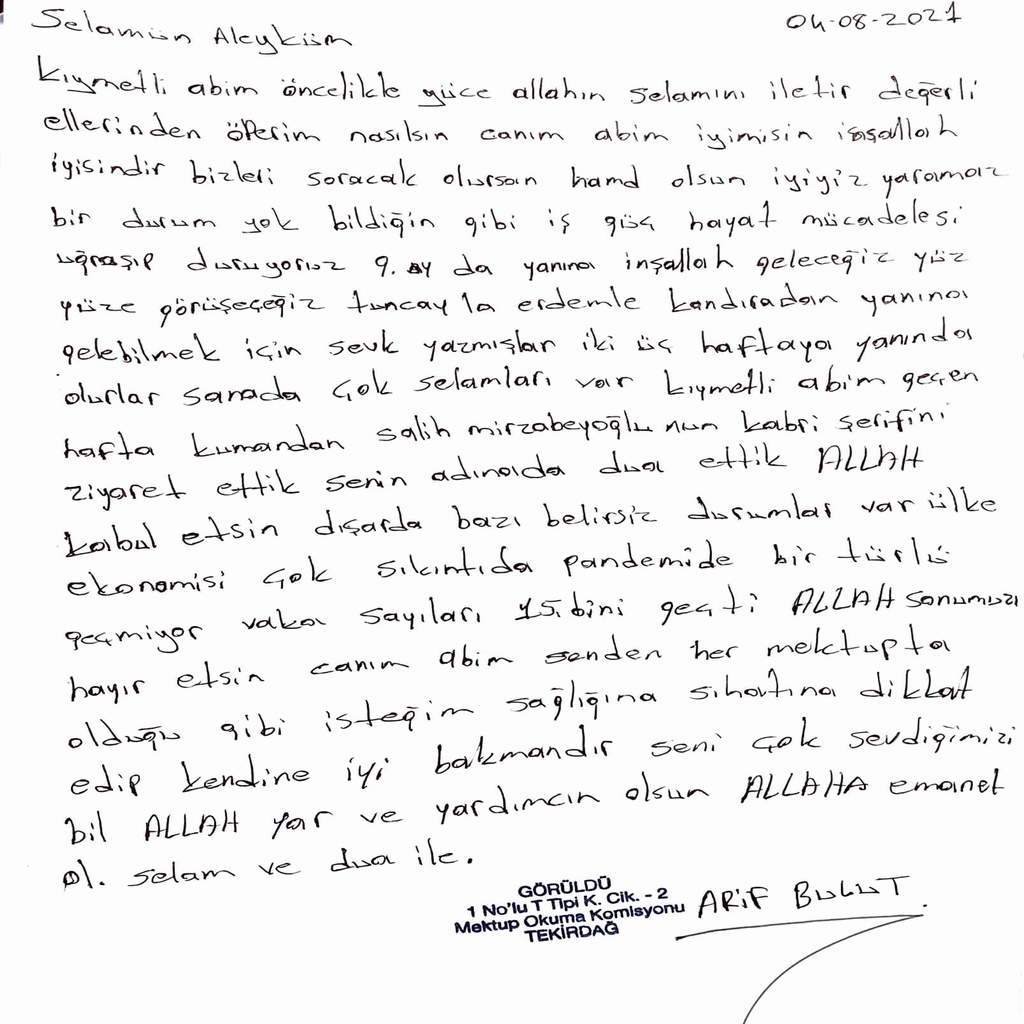 Selamün Aleyküm
04-08-2021
Kıymetli abim öncelikle yüce allahın selamını iletir değerli
ellerinden öperim nasılsın canım abim iyimisin inşallah
iyisindir bizleri soracak olursan hamd olsun iyiyiz yaramaz
bir durum yok bildiğin gibi iş güç hayat mücadelesi
uğraşıp duruyoruz 9. ay da yanına inşallah geleceğiz yüz
yüze görüşeçeğiz tuncay'la erdemle kandıradan yanına
gelebilmek için sevk yazmışlar iki üç haftaya yanında
olurlar sanada çok selamları var kıymetli abim geçen
hafta kumandan salih mirzabeyoğlu nun kabri şerifini
ziyaret ettik senin adınada dua ettik ALLAH
kabul etsin dışarda bazı belirsiz durumlar var ülke
ekonomisi çok sıkıntıda pandemide bir türlü
geçmiyor vaka sayıları 15.bini geçti ALLAH sonumuzu
hayır etsin canım abim senden her mektupta
olduğu gibi isteğim sağlığına sıhatına dikkat
edip kendine iyi bakmandır seni çok sevdiğimizi
bil ALLAH yar ve yardımcın olsun ALLAHA emanet
ol. selam ve dua ile.
GÖRÜLDÜ
1 No'lu T Tipi K. Cik. - 2
Mektup Okuma Komisyonu
TEKİRDAĞ
ARİF BULUT